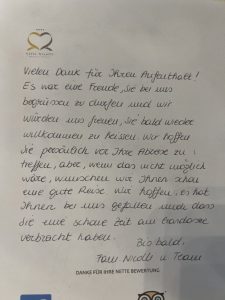 Vielen Dank für Ihren Aufenthalt!
Es war eine Freude, Sie bei uns
begrüssen zu dürfen und wir
würden uns freuen, Sie bald wieder
willkommen zu heissen. Wir hoffen
Sie persönlich vor Ihre Abreise zu
treffen, aber, wenn das nicht möglich
wäre, wünschen wir Ihnen schon
eine gute Reise. Wir hoffen, es hat
Ihnen bei uns gefallen und dass
Sie eine schöne Zeit am Gardasee
verbracht haben.
Bis bald,
Fam Nicolli u Team
DANKE FÜR IHRE NETTE BEWERTUNG